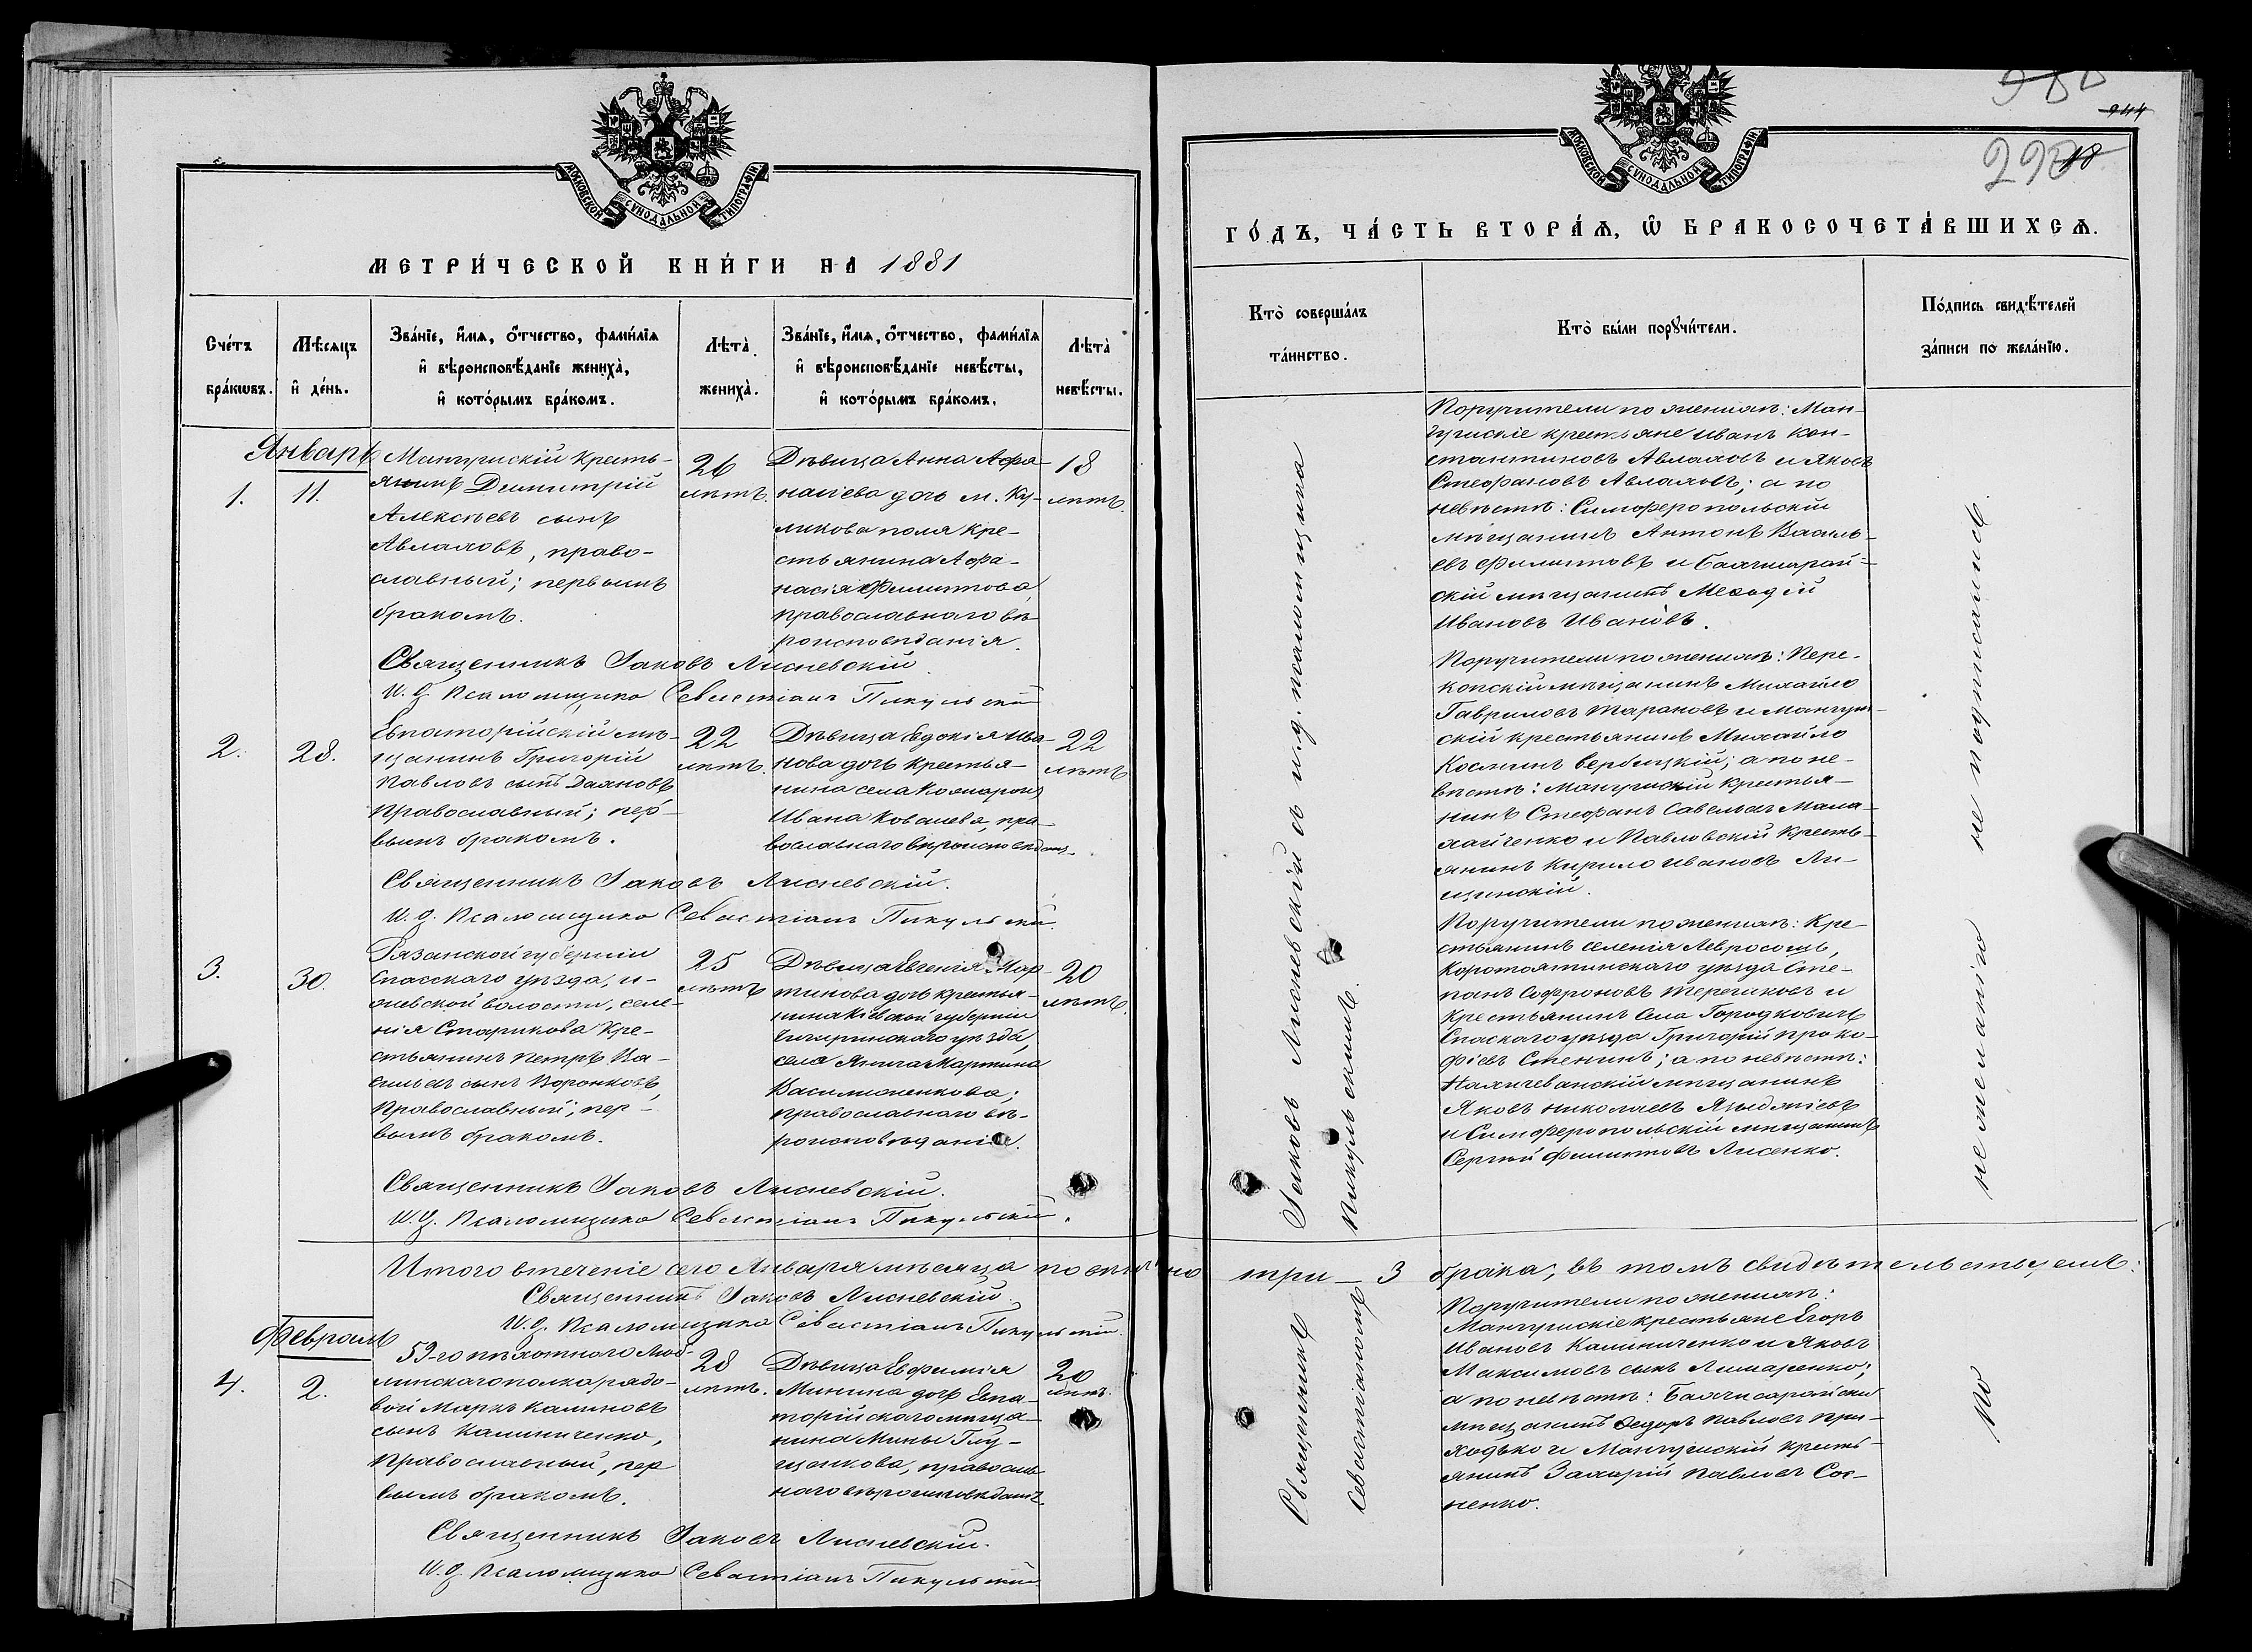 МОСКОВСКОЙ СѴНОДАЛЬНОЙ ТИПОГРАФІИ
МЕТРИ́ЧЕСКОЙ КНИ́ГИ НА 1881
Сче́тъ
бра́кѡвъ.
Мѣ́сяцъ
и҆ де́нь.
Зва́нїе, и҆́мѧ, ѻ҆́тчество, фами́лїѧ
и҆ вѣроисповѣ́данїе жениха̀,
и҆ кото́рымъ бра́комъ.
Лѣта̀
жениха̀.
Зва́нїе, и҆́мѧ, ѻ҆́тчество, фами́лїѧ
и҆ вѣроисповѣ́данїе невѣ́сты,
и҆ кото́рымъ бра́комъ.
Лѣта̀
невѣ́сты.
Январь
1.
11.
Мангушскій кресть-
янинъ Димитрій
Алексѣевъ сынъ
Авлаховъ, право-
славный; первымъ
бракомъ.
26
лѣтъ.
Дѣвица Анна Афа-
насіева дочь м. Ку-
ликова поля кре-
стьянина Афа-
насія Филиппова,
православнаго вѣ-
роисповѣданія.
18
лѣтъ.
Священникъ Іаковъ Лисневскій
И. д. Псаломщика Севастіанъ Пикульскій
2.
28.
Евпаторійскій мѣ-
щанинъ Григорій
Павловъ сынъ Даяновъ
православный; пер-
вымъ бракомъ.
22
лѣтъ.
Дѣвица Евдокія Ива-
нова дочь крестья-
нина села
Ивана Ковалева, пра-
вославнаго вѣроисповѣдан.
22
лѣтъ
Священникъ Іаковъ Лисневскій.
И. д. Псаломщика Севастіанъ Пикульскій.
3.
30.
Рязанской губерніи
Спасскаго уѣзда, и-
жевской волости, селе-
нія Старикова кре-
стьянинъ Петръ Ва-
сильевъ сынъ Воронковъ,
православный; пер-
вымъ бракомъ.
25
лѣтъ
Дѣвица Евгенія Мар-
тинова дочь крестья-
нина Кіевской губерніи
Чигиринскаго уѣзда,
села Мартина
Василионенкова;
православнаго вѣ-
роисповѣданія.
20
лѣтъ.
Священникъ Іаковъ Лисневскій.
И. д. Псаломщика Севастіанъ Пикульскій.
Итого втеченіе сего Января мѣсяца
Священникъ Іаковъ Лисневскій.
И. д. Псаломщика Севастіанъ Пикульскій.
Февраль
4.
2.
59-го пѣхотнаго Люб-
линскаго полка рядо-
вой Маркъ Калиновъ
сынъ Калиниченко,
православный, пер
вымъ бракомъ.
28
лѣтъ.
Дѣвица Евфимія
Минина дочь Евпа-
торійскаго мѣща-
нина Мины Глу-
щенкова, православ-
наго вѣроисповѣдан.
20
лѣтъ.
Священникъ Іаковъ Лисневскій.
И. д. Псаломщика Севастіанъ Пикульскій
МОСКОВСКОЙ СѴНОДАЛЬНОЙ ТИПОГРАФІИ
944
18
ГО́ДЪ, ЧА́СТЬ ВТОРА́Ѧ, Ѡ҆ БРАКОСОЧЕТА́ВШИХСѦ.
Кто̀ соверша́лъ
та́инство.
Кто̀ бы́ли порꙋчи́тели.
По́дпись свидѣ́телей
за́писи по жела́нїю.
Поручители по женихѣ: Ман-
гушскіе крестьяне Иванъ Кон-
стантиновъ Авлаховъ и Яковъ
Стефановъ Авлаховъ; а по
невѣстѣ: Симферопольскій
мѣщанинъ Антонъ Василь-
евъ Филипповъ и Бахчисарай-
скій мѣщанинъ Меѳодій
Ивановъ Ивановъ.
Поручители по женихѣ: Пере-
копскій мѣщанинъ Михайло
Гавриловъ Тарановъ и Мангуш-
скій крестьянинъ Михайло
Косминъ Вербицкій; а по не-
вѣстѣ: Мангушскій крестья-
нинъ Стефанъ Савельевъ Мала-
хайченко и Павловскій кресть-
янинъ Кирило Ивановъ Ли-
щинскій.
Поручители по женихѣ: Кре-
стьянинъ селенія
Коротоякинскаго уѣзда Сте-
панъ Софроновъ Терегаковъ и
крестьянинъ села Городковичъ
Спаскаго уѣзда Григорій Проко-
фіевъ Стенинъ; а по невѣстѣ:
Нахичеванскій мѣщанинъ
Яковъ Николаевъ Языджіевъ
и Симферопольскій мѣщанинъ
Сергѣй Филипповъ Лисенко.
три — 3 брака, въ томъ свидѣтельствуемъ:
Поручители по женихѣ:
Мангушскіе крестьяне Егоръ
Ивановъ Калиниченко и Яковъ
Максимовъ сынъ Лимаренко;
а по невѣстѣ: Бахчисарайскій
мѣщанинъ Федоръ Павловъ При-
ходько и Мангушскій кресть-
янинъ Захарій Павловъ Сос-
ненко.
Священникъ Іаковъ Лисневскій и и. д. псаломщика
Севастіаномъ Пикульскимъ.
По нежеланію не подписались.